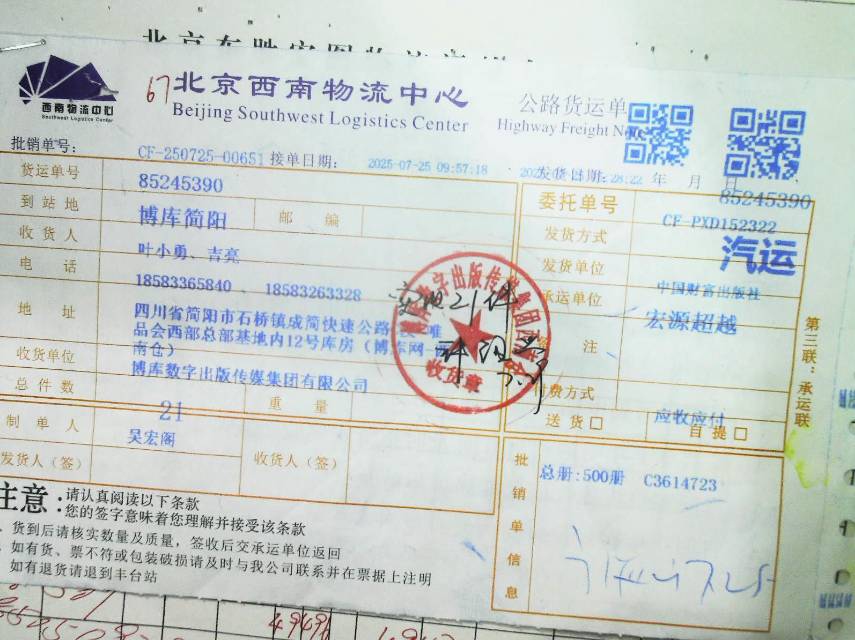 西南物流中心
Southwest Logistics Center
67
北京西南物流中心
Beijing Southwest Logistics Center
公路货运单
Highway Freight Note
批销单号:
CF-250725-00651 接单日期: 2025-07-25 09:57:18
发货日期: 28:22 年 月 日
货运单号 85245390
85245390
到站地 博库简阳 邮编
委托单号 CF-PXD152322
收货人 叶小勇、吉亮
发货方式 汽运
电话 18583365840、18583263328
发货单位 中国财富出版社
承运单位 宏源超越
地址 四川省简阳市石桥镇成简快速公路 唯
品会西部总部基地内12号库房（博库网
南仓）
注
收货单位 博库数字出版传媒集团有限公司
付费方式 应收应付
总件数 21 重量
送货□ 自提□
实收21件
收货章
制单人 吴宏阁
发货人（签） 收货人（签）
批销单信息
总册:500册 C3614723
第三联:承运联
注意:请认真阅读以下条款
您的签字意味着您理解并接受该条款
货到后请核实数量及质量，签收后交承运单位返回
如有货、票不符或包装破损请及时与我公司联系并在票据上注明
如有退货请退到丰台站